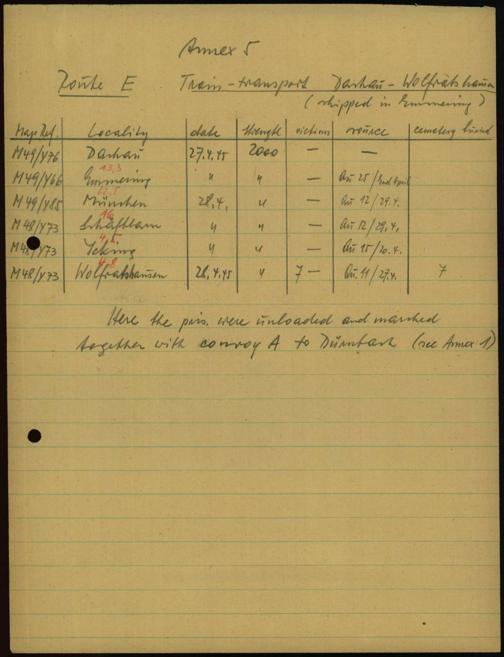 Annex 5
Route E Train-transport Dachau - Wolfratshausen
(shipped in Emmering)
Map Ref. Locality date strength victims source cemetery buried
M49/Y76 Dachau 27.4.45 2000 — —
13,3
M49/Y66 Emmering " " — AU 25/End April
M49/Y85 München 28.4. " — AU 12/29.4.
16
M48/Y73 Schäftlarn " " — AU 12/29.4.
4,2
M48/Y73 Icking " " — AU 15/20.4.
4,8
M48/Y73 Wolfratshausen 28.4.45 " 7 — AU 11/27.4. 7
Here the pris. were unloaded and marched
together with convoy A to Dürnbach (see Annex 1)